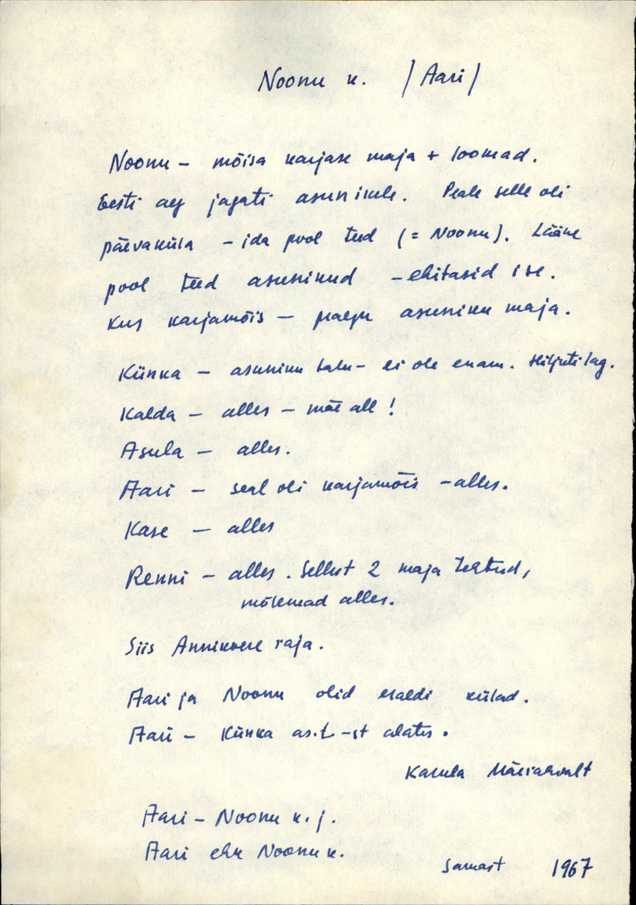 Noonu k. /Aari/
Noonu – mõisa karjase maja + loomad.
Eesti aeg jagati asunikule. Peale selle oli
päevaküla – ida pool teed (= Noonu). Lääne
pool teed asunikud – ehitasid ise.
Kus karjamõis – praegu asuniku maja.
Künka – asuniku talu – ei ole enam. Hiljuti lag.
Kalda – alles – mäe all!
Asula – alles.
Aari – seal oli karjamõis – alles.
Kase – alles
Renni – alles. Sellest 2 maja tehtud,
mõlemad alles.
Siis Annikvere raja.
Aari ja Noonu olid eraldi külad.
Aari – Künka as.t.-st alates.
Kasula
Aari – Noonu k. j.
Aari ehk Noonu k.
Samast 1967